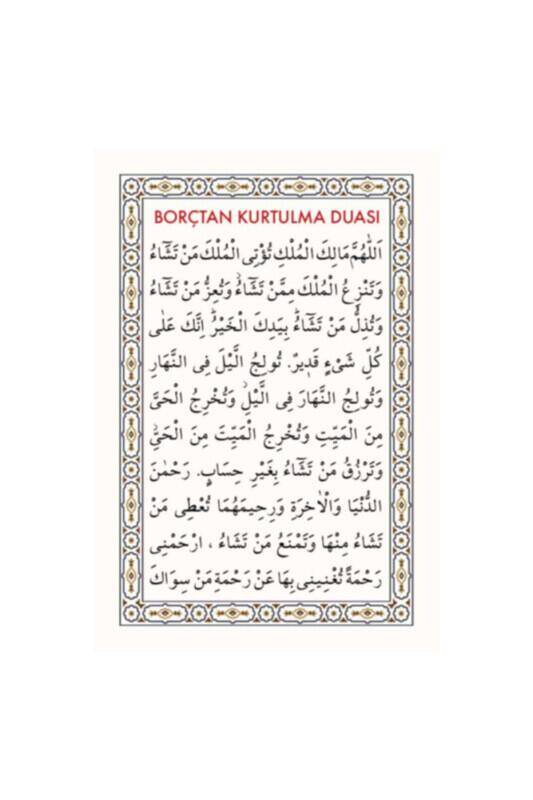 BORÇTAN KURTULMA DUASI
اَللّٰهُمَّ مَالِكَ الْمُلْكِ تُؤْتِى الْمُلْكَ مَنْ تَشَٓاءُ
وَتَنْزِعُ الْمُلْكَ مِمَّنْ تَشَٓاءُۘ وَتُعِزُّ مَنْ تَشَٓاءُ
وَتُذِلُّ مَنْ تَشَٓاءُۜ بِيَدِكَ الْخَيْرُۜ اِنَّكَ عَلٰى
كُلِّ شَىْءٍ قَدِيرٌ. تُولِجُ الَّيْلَ فِى النَّهَارِ
وَتُولِجُ النَّهَارَ فِى الَّيْلِۘ وَتُخْرِجُ الْحَىَّ
مِنَ الْمَيِّتِ وَتُخْرِجُ الْمَيِّتَ مِنَ الْحَىِّۘ
وَتَرْزُقُ مَنْ تَشَٓاءُ بِغَيْرِ حِسَابٍ. رَحْمٰنَ
الدُّنْيَا وَالْاٰخِرَةِ وَرَحِيمَهُمَا تُعْطِى مَنْ
تَشَٓاءُ مِنْهَا وَتَمْنَعُ مَنْ تَشَٓاءُ ، ارْحَمْنِى
رَحْمَةً تُغْنِينِى بِهَا عَنْ رَحْمَةِ مَنْ سِوَاكَ